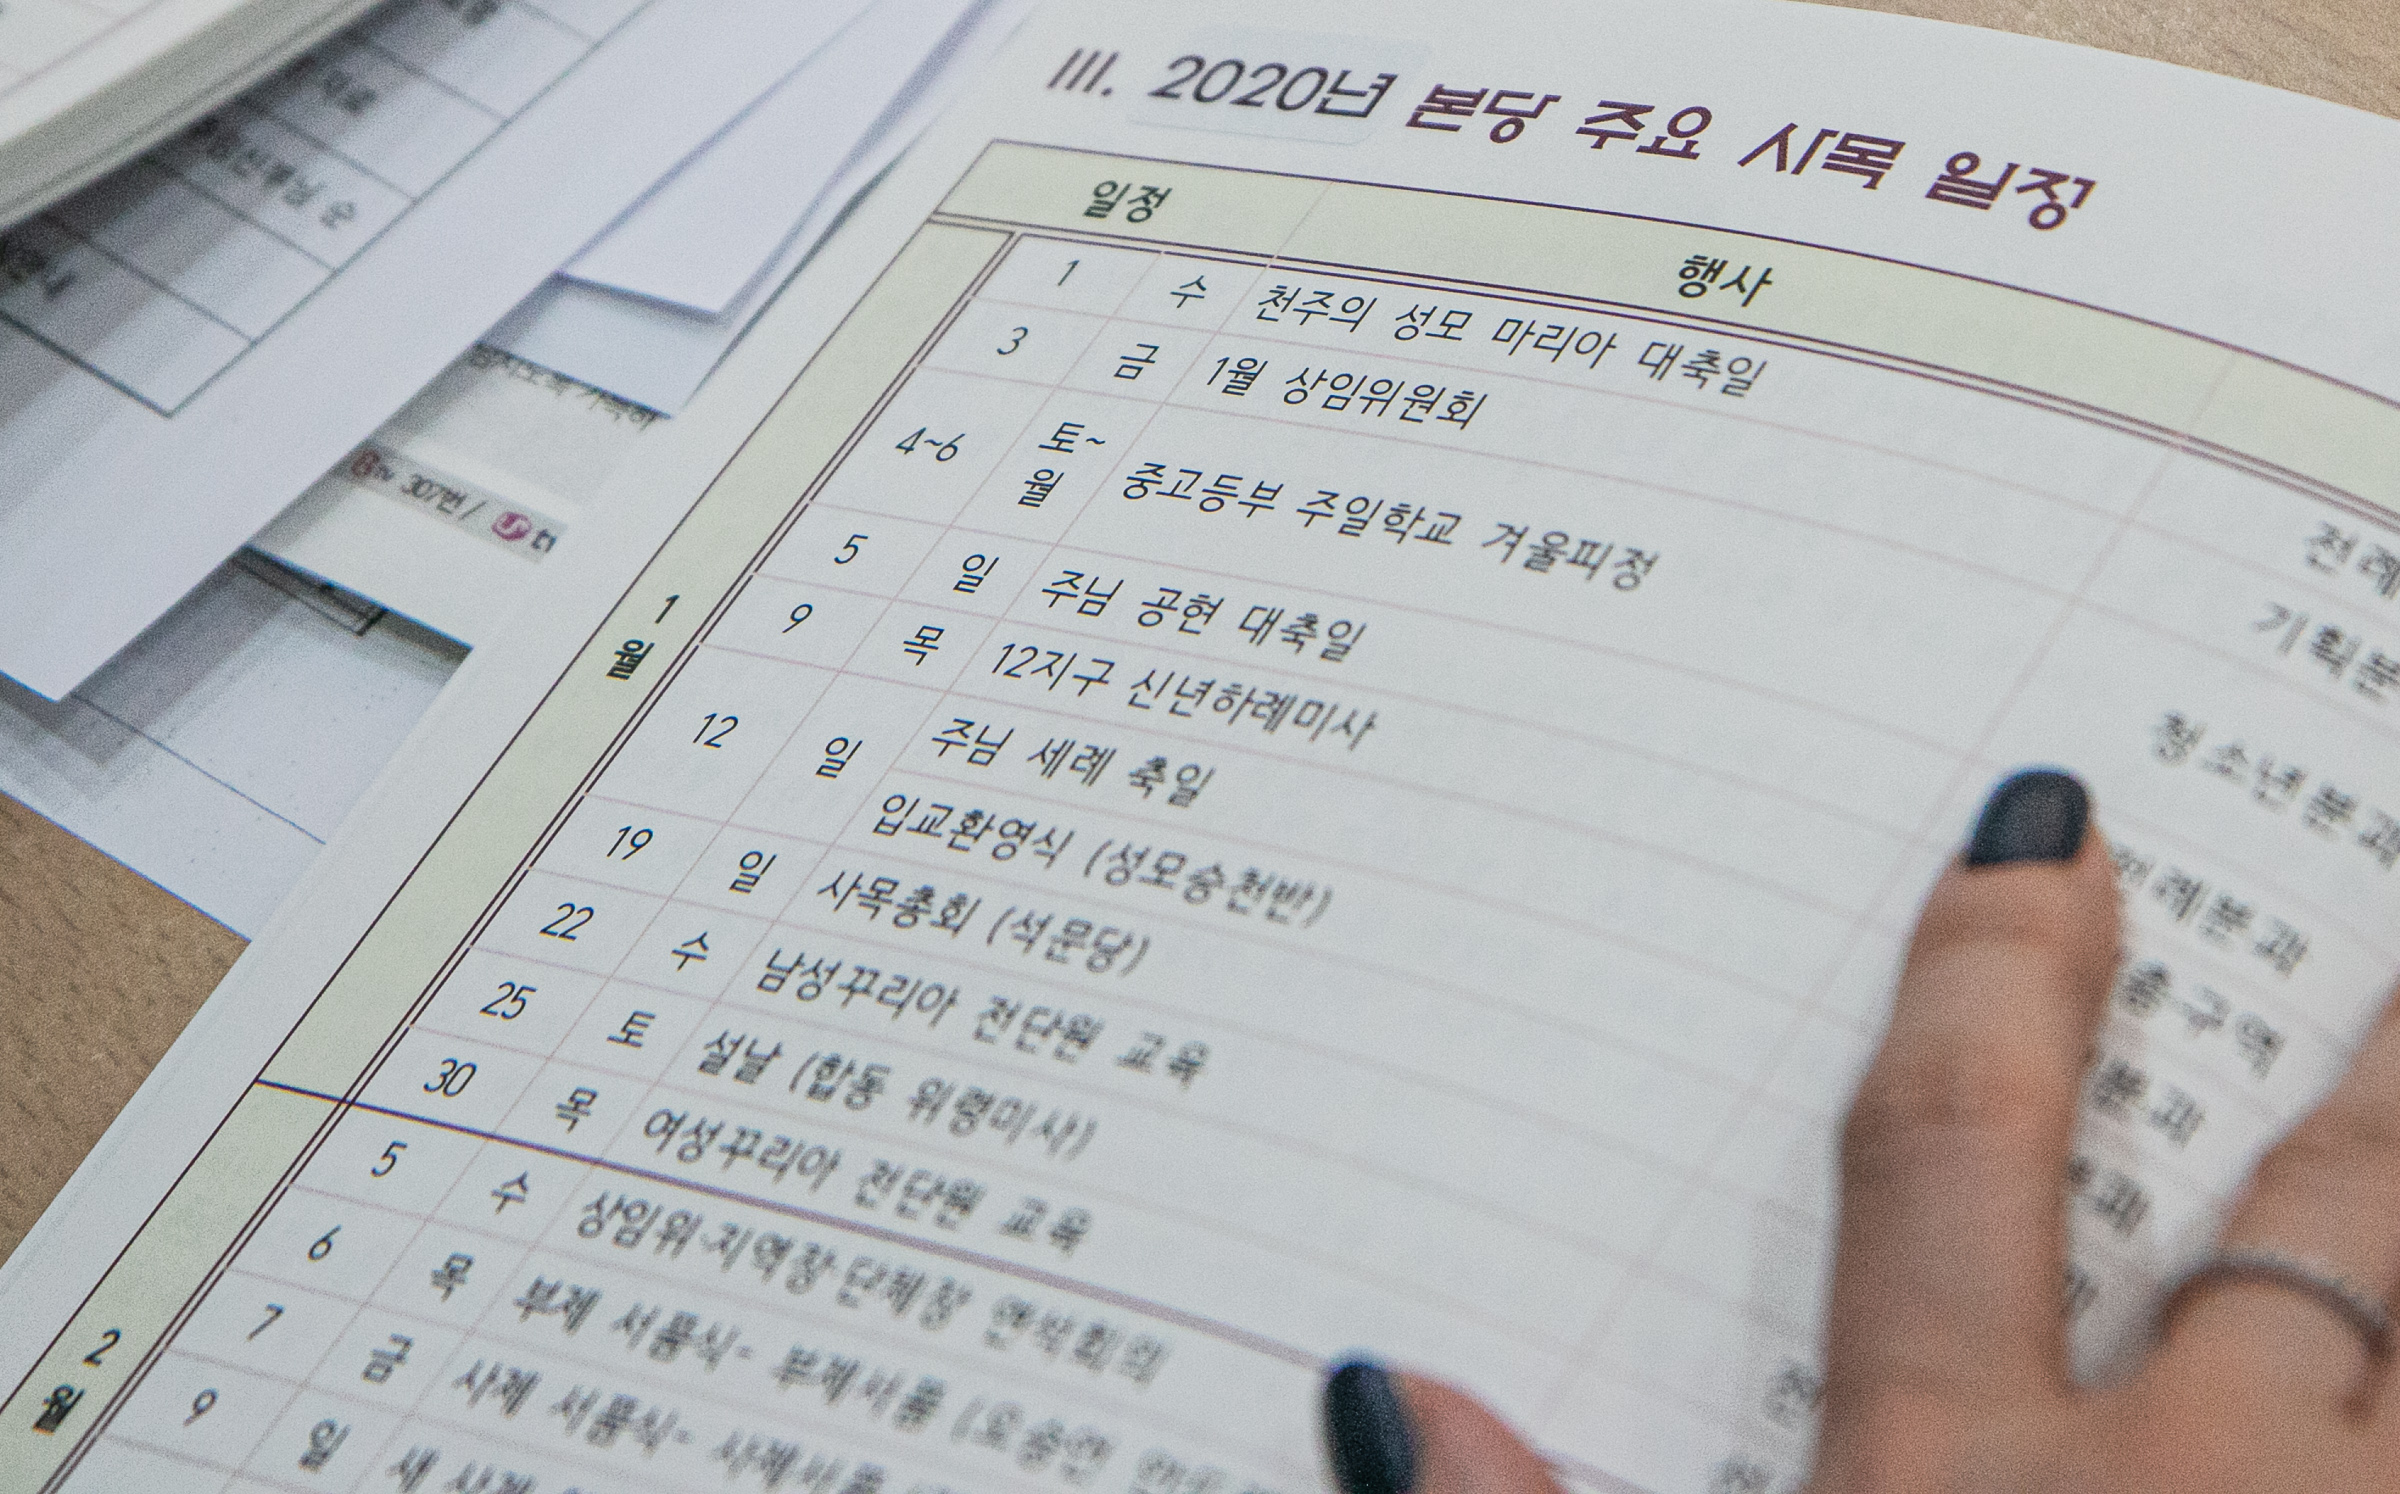 III. 2020년 본당 주요 사목 일정
일정 행사
1월
1 수 천주의 성모 마리아 대축일 전례
3 금 1월 상임위원회 기획분
4~6 토~월 중고등부 주일학교 겨울피정 청소년분과
5 일 주님 공현 대축일
9 목 12지구 신년하례미사
12 일 주님 세례 축일 전례분과
입교환영식 (성모승천반)
19 일 사목총회 (석문당)
22 수 남성꾸리아 전단원 교육
25 토 설날 (합동 위령미사)
30 목 여성꾸리아 전단원 교육
2월
5 수 상임위·지역장·단체장 연석회의
6 목 부제 서품식- 부제서품
7 금 사제 서품식- 사제서품
9 일 새 사제
307번 /